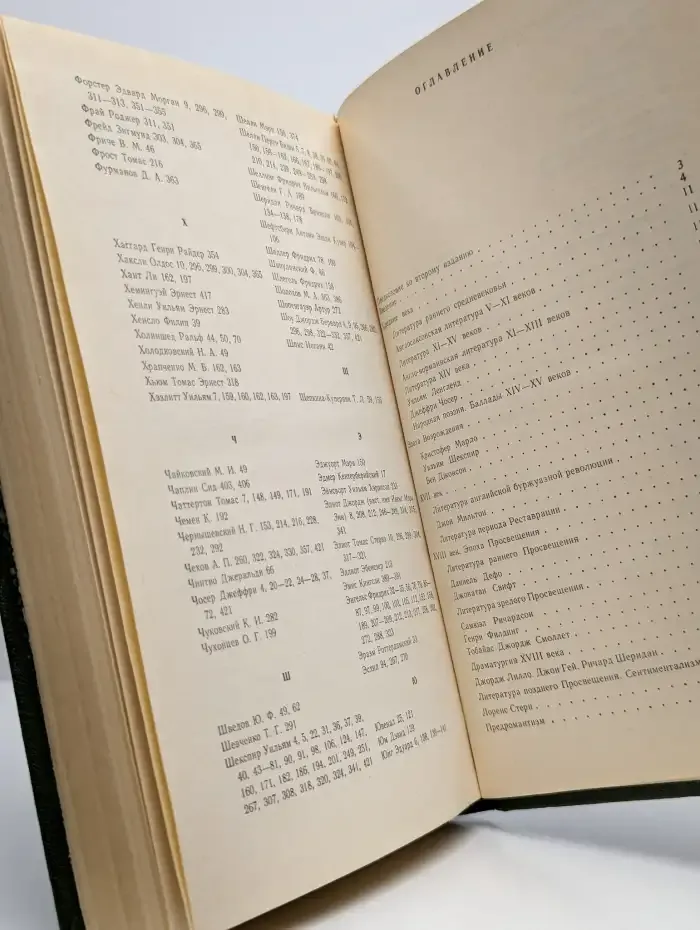 Форстер Эдвард Морган 9, 296, 299,
311—313, 351—355
Фрай Роджер 311, 351
Фрейд Зигмунд 303, 304, 365
Фриче В. М. 46
Фрост Томас 216
Фурманов Д. А. 363
Х
Хаггард Генри Райдер 354
Хаксли Олдос 10, 296, 299, 300, 304, 365
Хант Ли 162, 197
Хемингуэй Эрнест 417
Хенли Уильям Эрнест 283
Хенсло Филип 39
Холиншед Ральф 44, 50, 70
Холодковский Н. А. 49
Храпченко М. Б. 162, 163
Хьюм Томас Эрнест 318
Хэзлитт Уильям 7, 159, 160, 162, 163, 197
Ч
Чайковский М. И. 49
Чаплин Сид 403, 406
Чаттертон Томас 7, 148, 149, 171, 191
Чемен К. 192
Чернышевский Н. Г. 153, 214, 216, 228,
232, 292
Чехов А. П. 260, 322, 324, 330, 357, 421
Чинтио Джеральди 66
Чосер Джеффри 4, 20—22, 24—28, 37,
72, 421
Чуковский К. И. 282
Чухонцев О. Г. 199
Ш
Шведов Ю. Ф. 49, 62
Шевченко Т. Г. 291
Шекспир Уильям 4, 5, 22, 31, 36, 37, 39,
40, 43—81, 90, 91, 98, 106, 124, 147,
160, 171, 182, 186, 194, 201, 249, 251,
267, 307, 308, 318, 320, 324, 341, 421
Шелли Мэри
Шелли Перси Биши
Шеллинг Фридрих Вильгельм
Шенгели Г. А.
Шеридан Ричард Бринсли
134—138, 178
Шефтсбери Антони Эшли Купер
106
Шиллер Фридрих 78, 199
Шлегель Фридрих
Шолохов М. А.
Шопенгауэр Артур 272
Шоу Джордж Бернард
Шпис Иоганн 42
Щ
Щепкина-Куперник Т. Л. 39,
Э
Эджуорт Мэри 150
Эдмер Кентерберийский 17
Эйнсворт Уильям
Элиот Джордж
341
Элиот Томас Стернз 10,
317—321
Эллиот Эбенезер 213
Эмис Кингсли
Энгельс Фридрих
272, 288, 323
Эразм Роттердамский
Эсхил 94, 207, 270
Ю
Ювенал 25, 121
Юм Дэвид 128
Юнг Эдуард 6, 138,
ОГЛАВЛЕНИЕ
Предисловие ко второму изданию 3
Введение 4
Средние века 11
Литература раннего средневековья 11
Англосаксонская литература V—XI веков
Литература XI—XV веков
Англо-нормандская литература XI—XIII веков
Литература XIV века
Уильям Ленгленд
Джеффри Чосер
Народная поэзия. Баллады XIV—XV веков
Эпоха Возрождения
Кристофер Марло
Уильям Шекспир
Бен Джонсон
XVII век
Литература английской буржуазной революции
Джон Мильтон
Литература периода Реставрации
XVIII век. Эпоха Просвещения
Литература раннего Просвещения
Даниель Дефо
Джонатан Свифт
Литература зрелого Просвещения
Сэмюэл Ричардсон
Генри Филдинг
Тобайас Джордж Смоллет
Драматургия XVIII века
Джордж Лилло. Джон Гей. Ричард Шеридан
Литература позднего Просвещения. Сентиментализм
Лоренс Стерн
Предромантизм